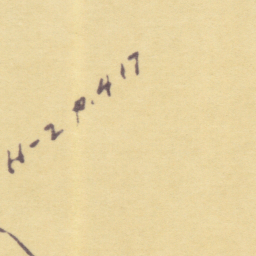 H-2 p.417